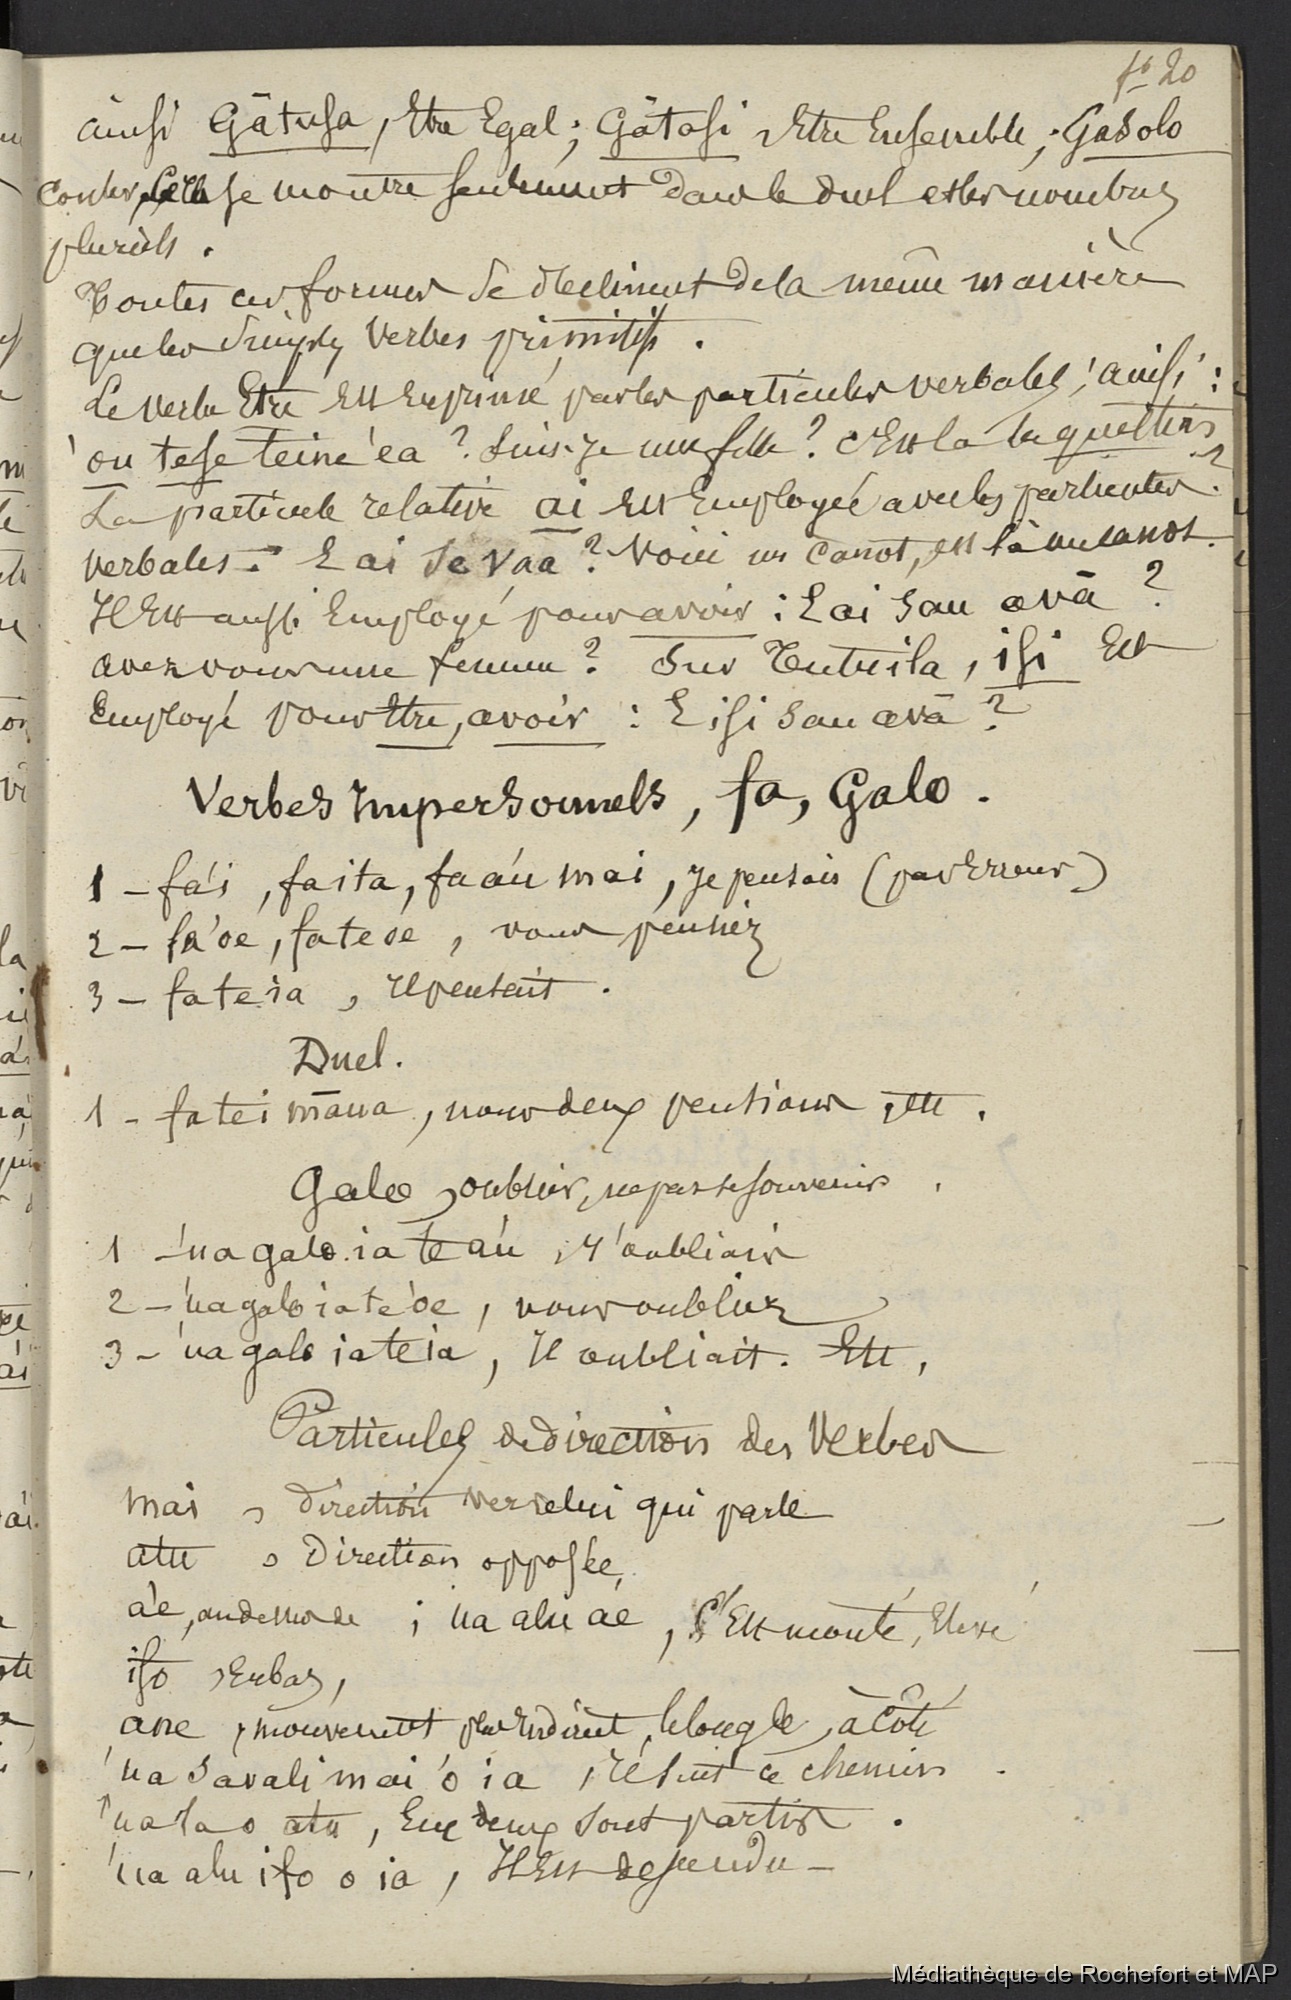 fo 20
ainsi Gātusa, Etre Egal; Gātasi, Etre Ensemble; Gasolo
couler, Celle se montre seulement dans le duel et les nombres
pluriels.
Toutes ces formes se declinent de la même manière
que les simples Verbes primitifs.
Le verbe Etre Est Exprimé par les particules verbales; ainsi:
'ou te se teine 'ea? Suis-je une fille? C'Est là la question?
La particule relative ai Est Employée avec les particules
verbales: E ai se vaa? Voici un canot, est là un canot.
Il Est aussi Employé pour avoir: E ai sau avā?
avez vous une femme? Sur Tutuila, isi Est
Employé pour Etre, avoir: E isi sau avā?
Verbes Impersonnels, fa, Galo.
1 - fa'i, faita, fa a'u mai, je pensais (par Erreur)
2 - fa'oe, fate oe, vous pensiez
3 - fate ia, Il pensait.
Duel.
1 - fatei māua, nous deux pensions, etc.
Galo, oublier, ne pas se souvenir.
1 - 'ua galo ia te a'u, J'oubliais
2 - 'ua galo ia te 'oe, vous oubliez
3 - 'ua galo ia te ia, Il oubliait. Etc,
Particules de direction des Verbes
mai, direction vers celui qui parle
atu, Direction opposée,
a'e, au dessus de; ua alu ae, S'Est monté, Elevé
ifo, En bas,
ane, mouvement plus Indirect, le long de, à côté
'ua savali mai 'o ia, Il suit ce chemin.
'ua la o atu, Eux deux sont partis.
'ua alu ifo o ia, Il Est descendu -
Médiathèque de Rochefort et MAP